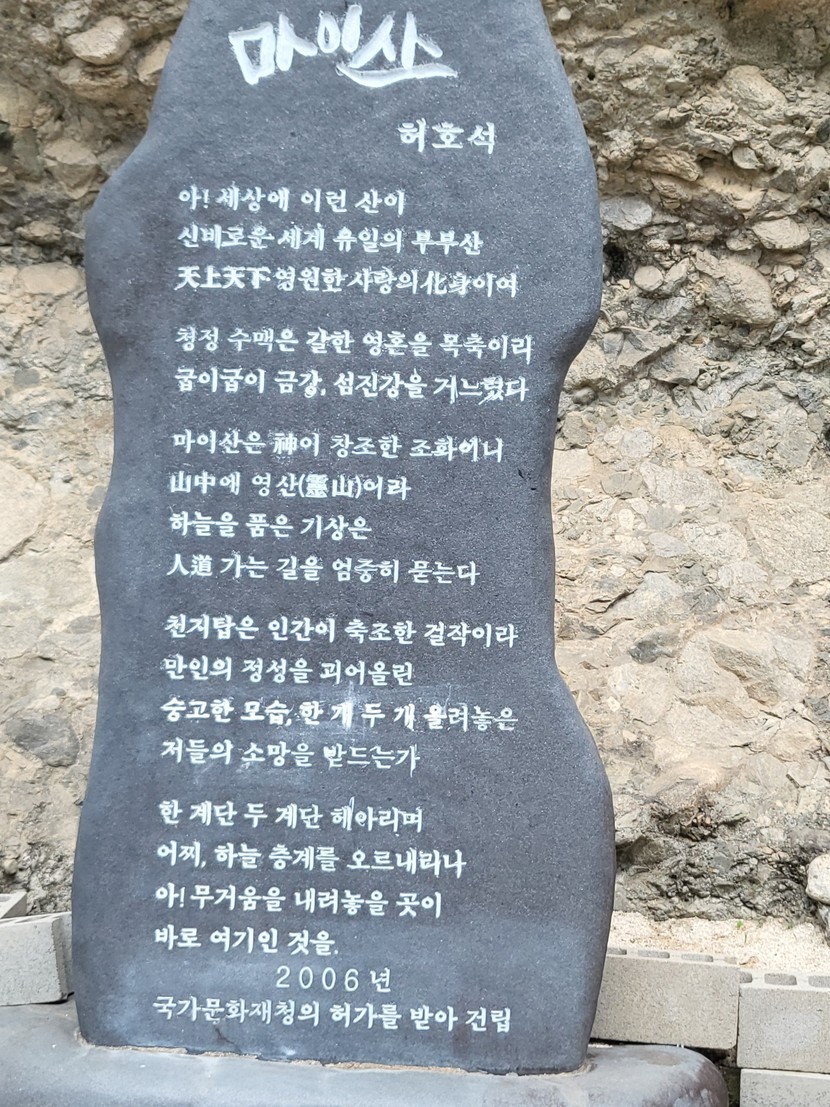 마이산
허호석
아! 세상에 이런 산이
신비로운 세계 유일의 부부산
天上天下 영원한 사랑의 化身이여
청정 수맥은 갈한 영혼을 목축이라
굽이굽이 금강, 섬진강을 거느렸다
마이산은 神이 창조한 조화이니
山中에 영산(靈山)이라
하늘을 품은 기상은
人道 가는 길을 엄중히 묻는다
천지탑은 인간이 축조한 걸작이라
만인의 정성을 괴어올린
숭고한 모습, 한 개 두 개 올려놓은
저들의 소망을 받드는가
한 계단 두 계단 헤아리며
어찌, 하늘 층계를 오르내리나
아! 무거움을 내려놓을 곳이
바로 여기인 것을.
2006년
국가문화재청의 허가를 받아 건립